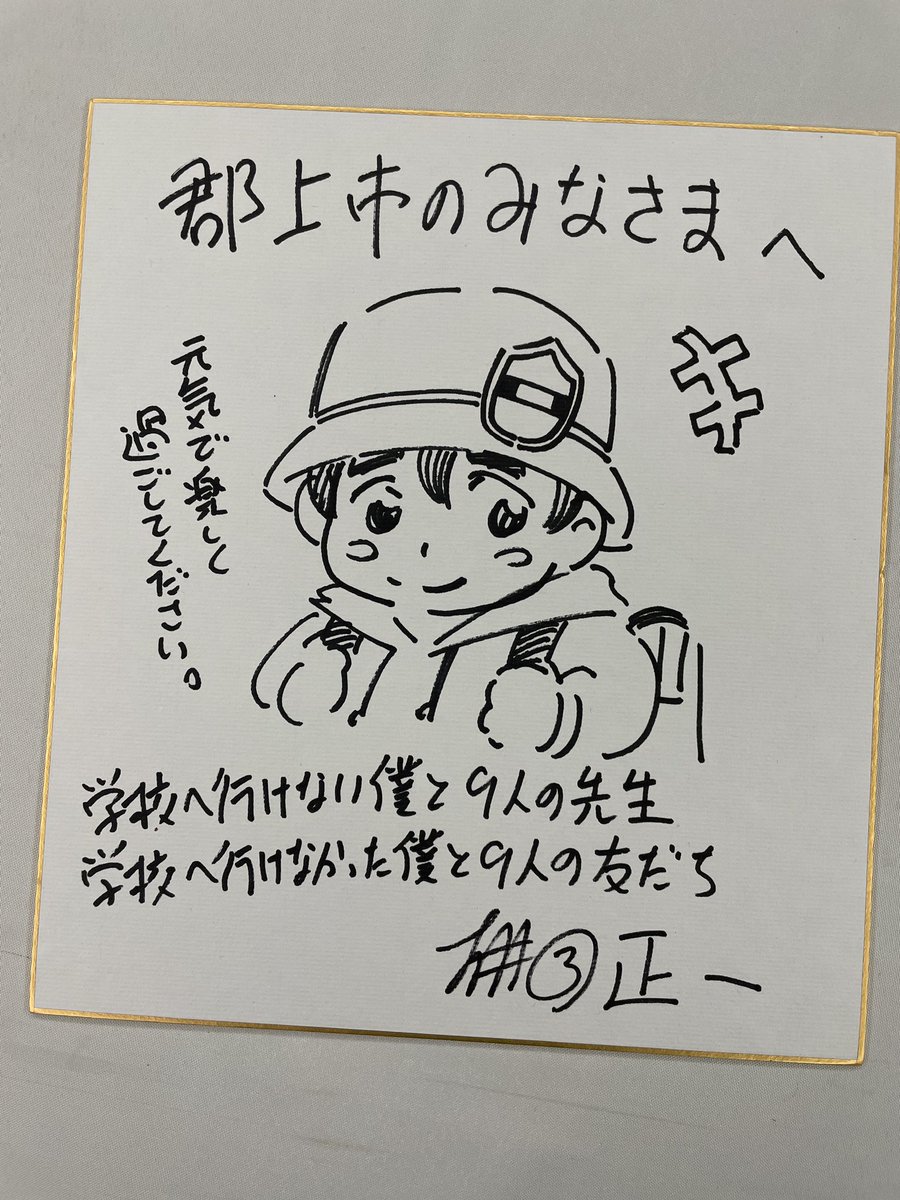 郡上市のみなさまへ
元気で楽しく
過ごしてください。
学校へ行けない僕と9人の先生
学校へ行けなかった僕と9人の友だち
棚③正一